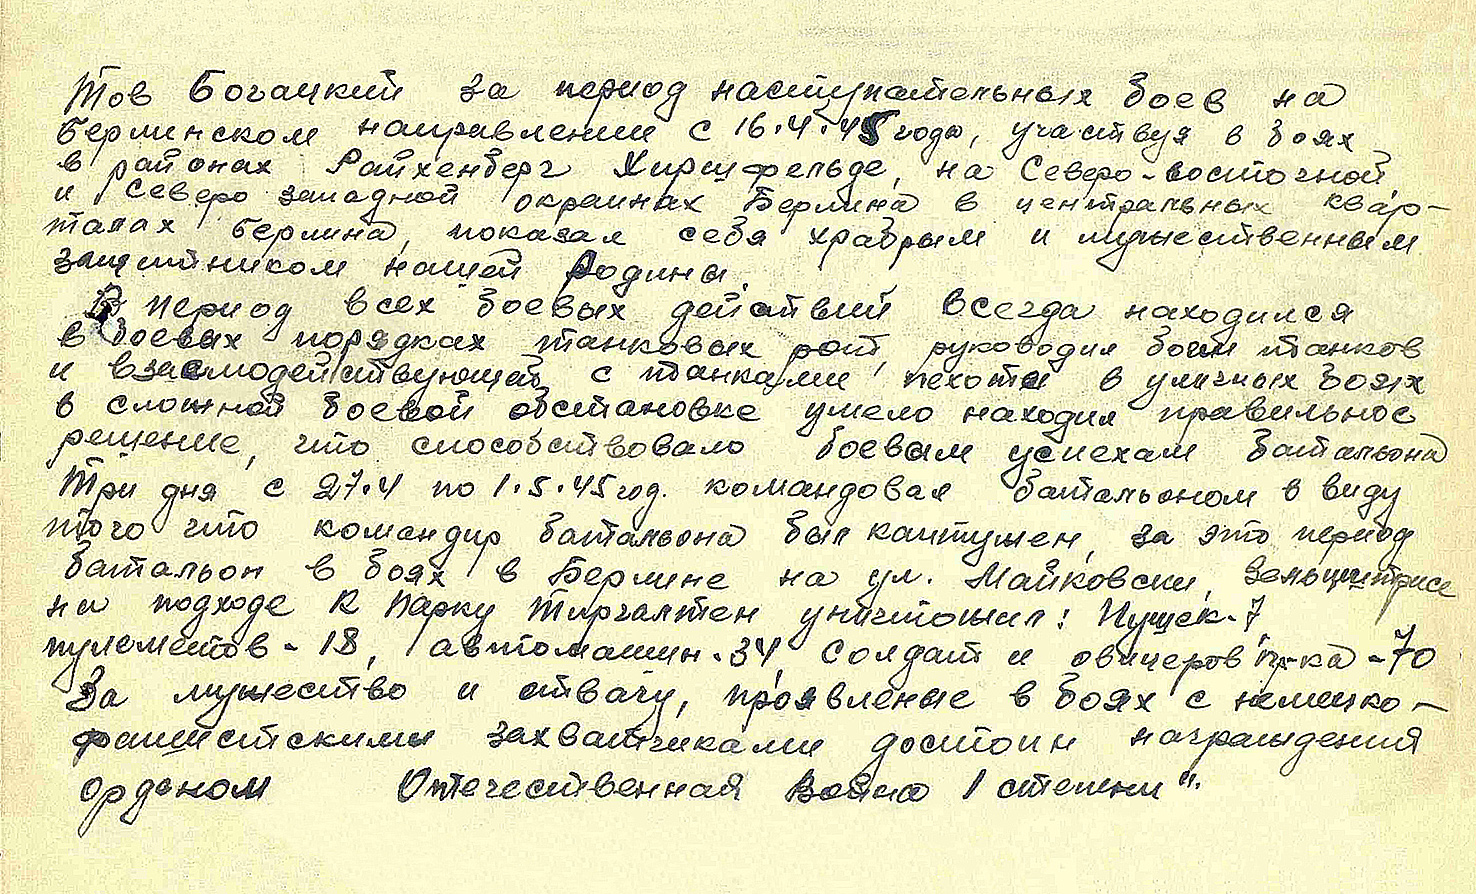 Тов Богацкий за период наступательных боев на
Берлинском направлении с 16.4.45 года, участвуя в боях
в районах Райхенберг Хиршфельде, на Северо-восточной
и Северо западной окраинах Берлина в центральных квар-
талах Берлина, показал себя храбрым и мужественным
защитником нашей Родины.
В период всех боевых действий всегда находился
в боевых порядках танковых рот, руководил боем танков
и взаемодействующей с танками пехоты в уличных боях
в сложной боевой обстановке умело находил правильное
решение, что способствовало боевым успехам батальона
Три дня с 27.4 по 1.5.45 год. командовал батальоном в виду
того что командир батальона был кантужен, за это период
батальон в боях в Берлине на ул. Майковски,
на подходе к Парку Тиргалтен уничтожил: Пушек-7,
пулеметов - 18, автомашин - 34, солдат и офицеров пр-ка - 70
За мужество и отвагу, проявление в боях с немецко-
фашистскими захватчиками достоин награждения
орденом Отечественная Война I степени".